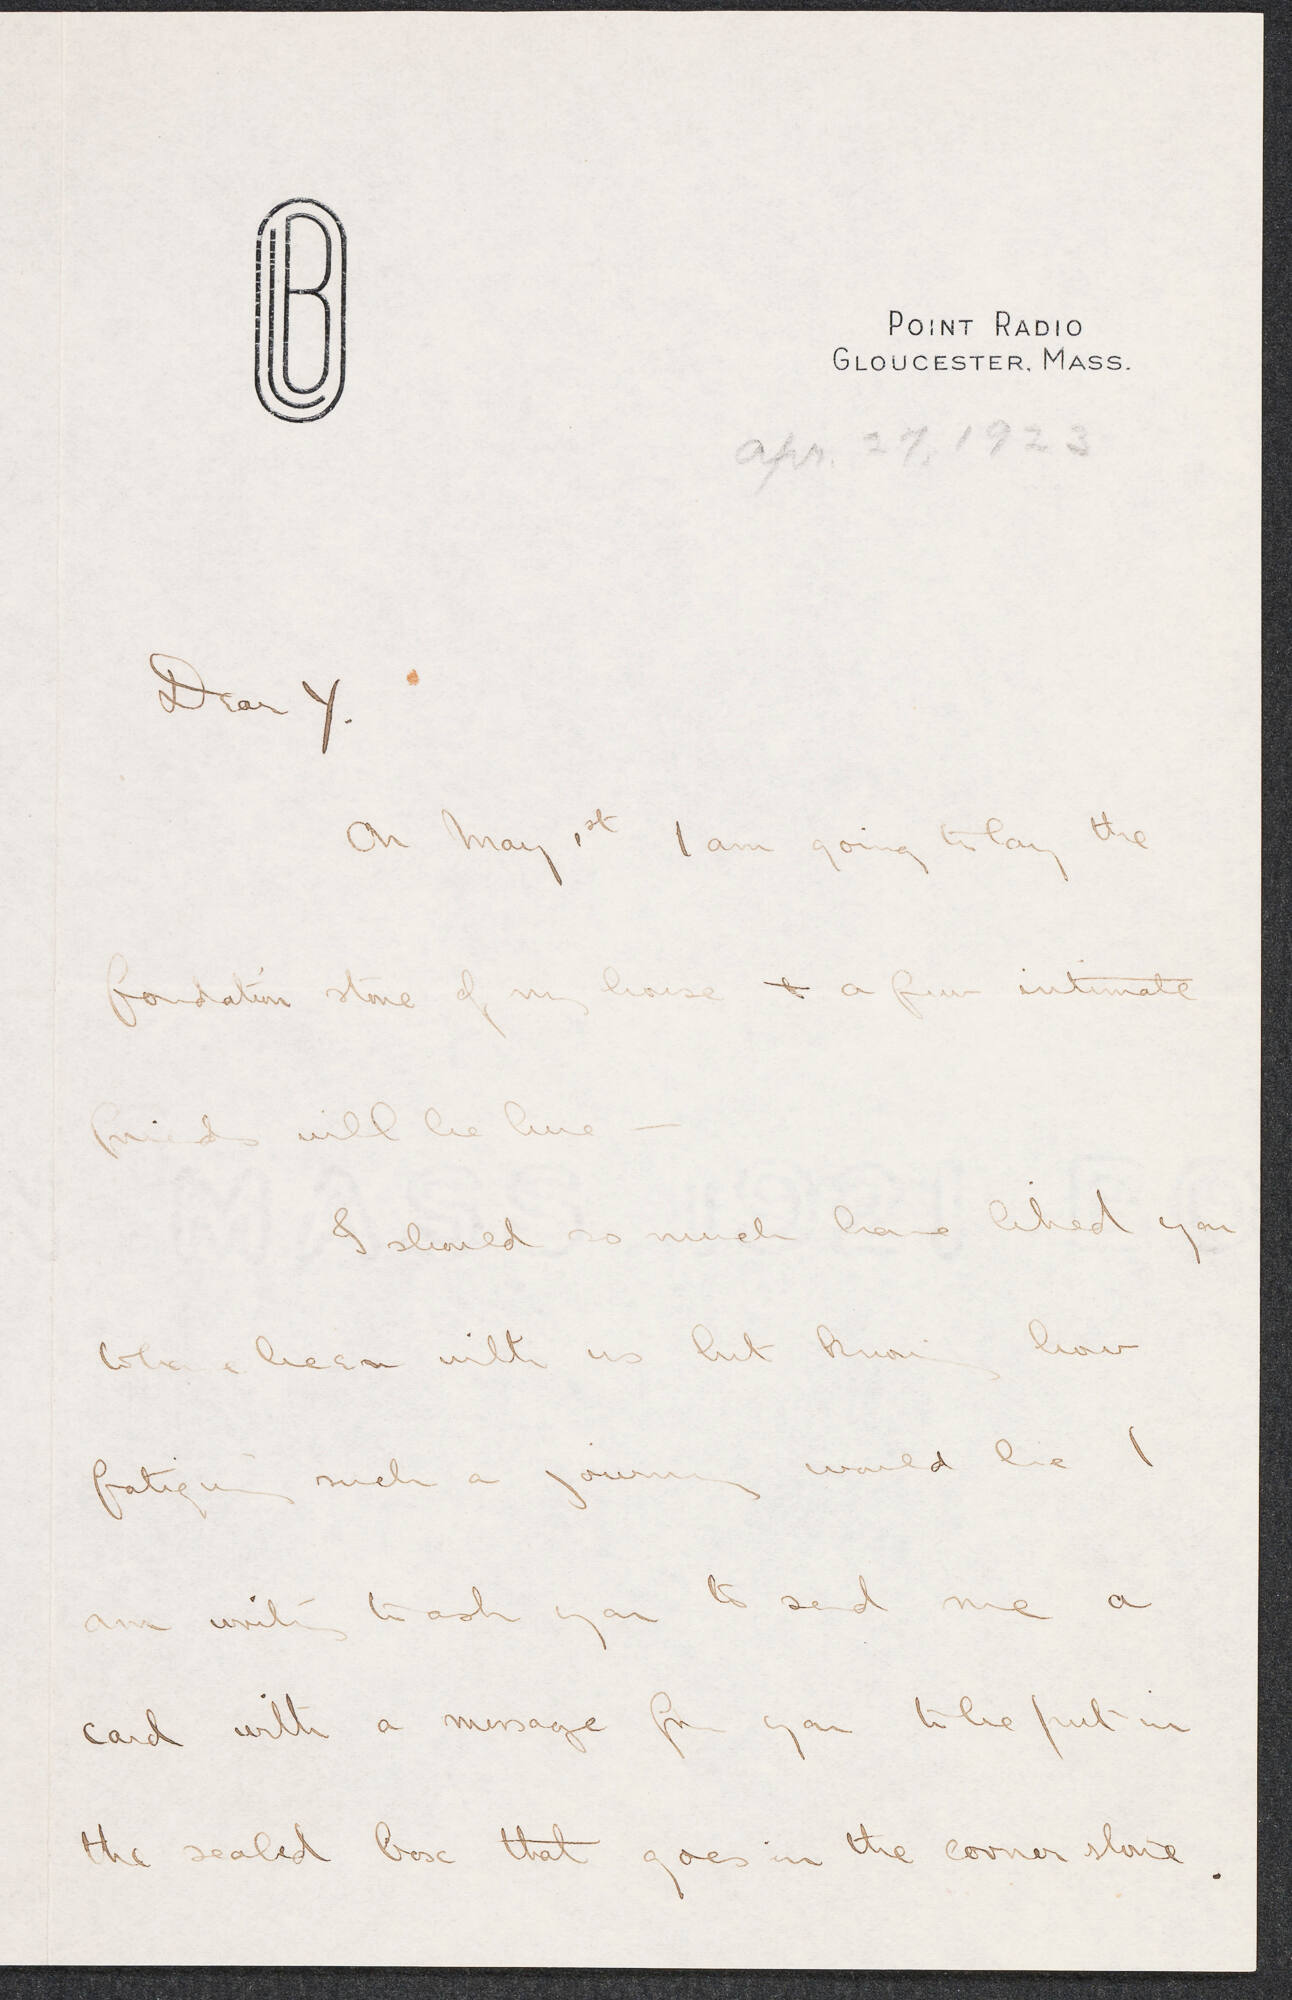 Point Radio
Gloucester, Mass.
Apr. 27, 1923
Dear Y.
On May 1st I am going to lay the
foundation stone of my house & a few intimate
friends will be here —
I should so much have liked you
to have been with us but knowing how
fatiguing such a journey would be I
am writing to ask you to send me a
card with a message from you to be put in
the sealed box that goes in the corner stone.